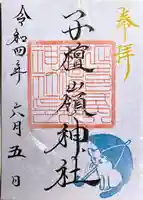 奉拝
子檀嶺神社
令和四年 六月 五 日